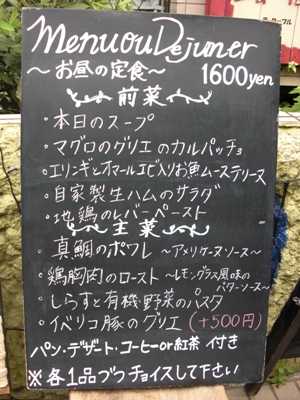 Menu ou Dejuner
～お昼の定食～ 1600yen
前菜
・本日のスープ
・マグロのグリエのカルパッチョ
・エリンギとオマールエビ入りお魚ムーステリーヌ
・自家製生ハムのサラダ
・地鶏のレバーペースト
主菜
・真鯛のポワレ ～アメリケーヌソース～
・鶏胸肉のロースト ～レモングラス風味のバターソース～
・しらすと有機野菜のパスタ
・イベリコ豚のグリエ (+500円)
パン・デザート・コーヒーor紅茶 付き
※各1品づつチョイスして下さい